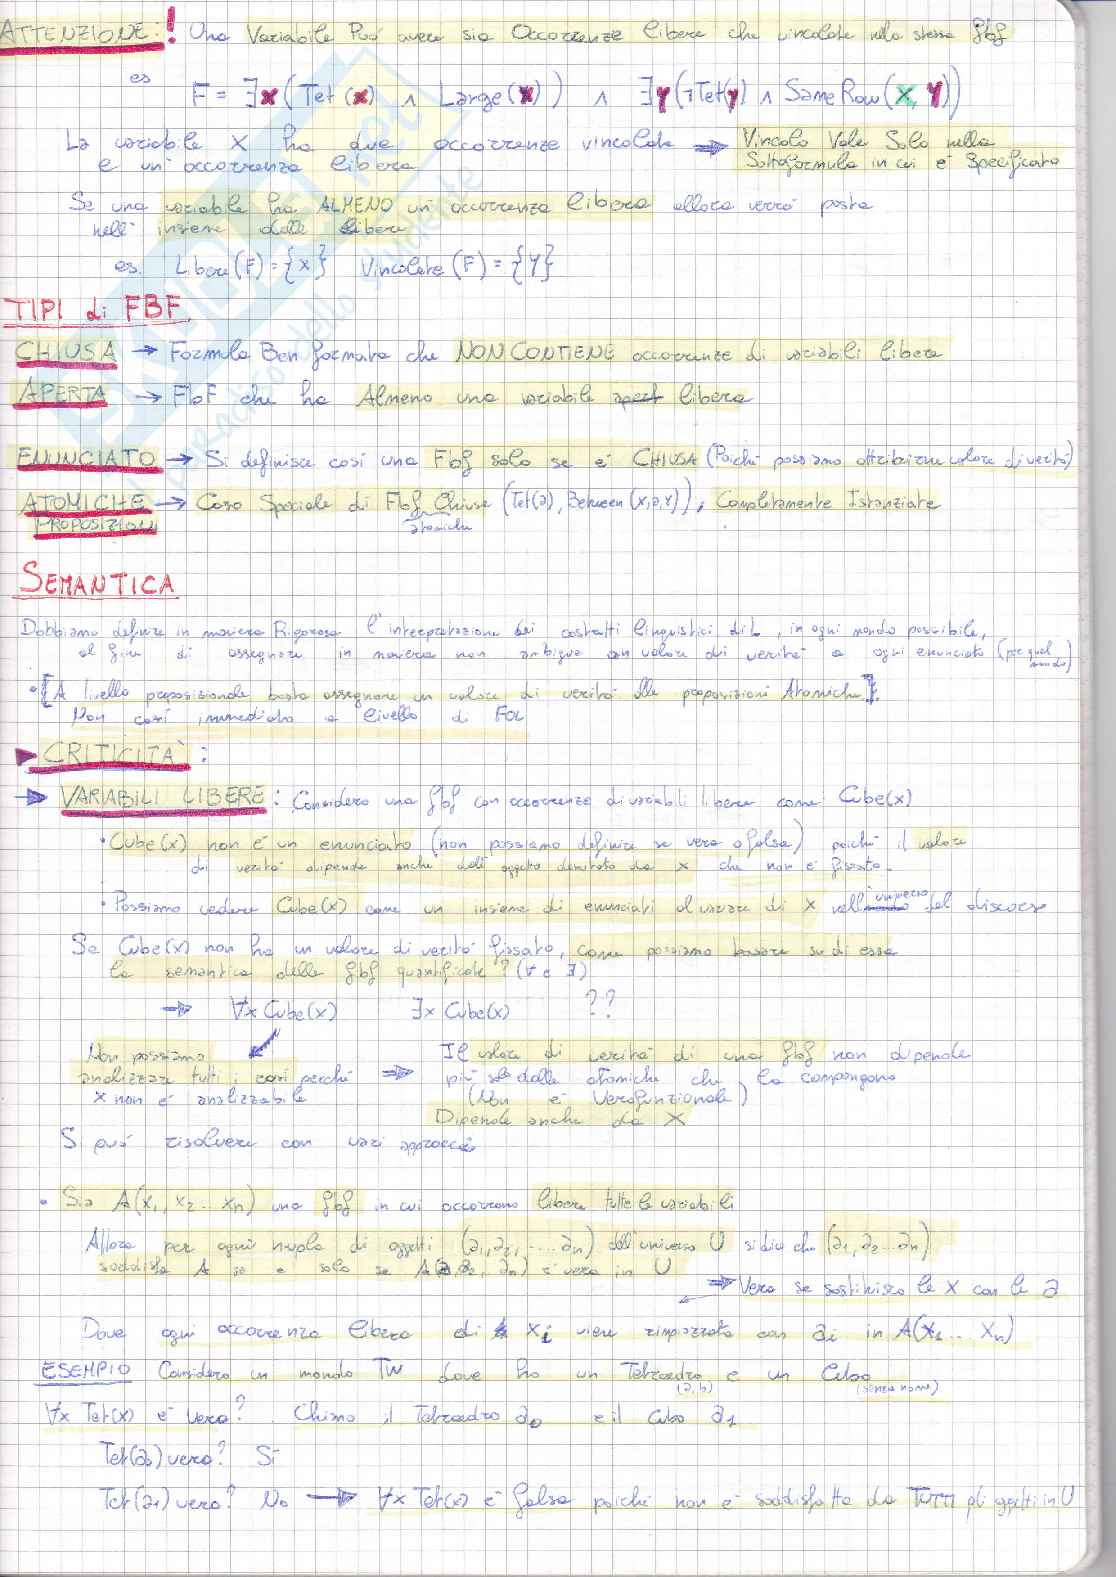 ATTENZIONE: ! Una Variabile Può avere sia Occorrenze libere che vincolate nella stessa fbf
es F = ∃x(Tet(x) ∧ Large(x)) ∧ ∃y(¬Tet(y) ∧ SameRow(x,y))
La variabile X ha due occorrenze vincolate → Vincolo Vale Solo nella
e un'occorrenza libera Sottoformula in cui è Specificato
Se una variabile ha ALMENO un'occorrenza libera allora verrà posta
nell'insieme delle libere
es. Libere(F) = {x} Vincolate(F) = {y}
TIPI di FBF
CHIUSA → Formula Ben formata che NON CONTIENE occorrenze di variabili libere
APERTA → FbF che ha Almeno una variabile libera
ENUNCIATO → Si definisce così una Fbf solo se è CHIUSA (Poiché possiamo attribuirne valore di verità)
ATOMICHE → Caso Speciale di Fbf Chiuse (Tet(a), Between(x,a,y)), Completamente Istanziate
PROPOSIZIONI atomiche
SEMANTICA
Dobbiamo definire in maniera Rigorosa l'interpretazione dei costrutti linguistici di L, in ogni mondo possibile,
al fine di assegnare in maniera non ambigua un valore di verità a ogni enunciato (per quel mondo)
• [A livello proposizionale basta assegnare un valore di verità alle proposizioni Atomiche].
Non così immediato a livello di FOL
► CRITICITÀ:
→ VARIABILI LIBERE: Considero una fbf con occorrenze di variabili libere come: Cube(x)
• Cube(x) non è un enunciato (non possiamo definire se vera o falsa) poiché il valore
di verità dipende anche dall'oggetto denotato da x che non è fissato.
• Possiamo vedere Cube(x) come un insieme di enunciati al variare di x nell'universo del discorso
Se Cube(x) non ha un valore di verità fissato, come possiamo basare su di essa
la semantica delle fbf quantificate? (∀ e ∃)
→ ∀x Cube(x) ∃x Cube(x) ??
Non possiamo Il valore di verità di una fbf non dipende
analizzare tutti i casi perché → più solo dalle atomiche che la compongono
x non è analizzabile (Non è Verofunzionale)
Dipende anche da X
Si può risolvere con vari approcci
• Sia A(x₁, x₂ ... xₙ) una fbf in cui occorrono libere tutte le variabili
Allora per ogni nupla di oggetti (a₁, a₂, .... aₙ) dell'universo U si dice che (a₁, a₂ ... aₙ)
soddisfa A se e solo se A(a₁, a₂, aₙ) è vera in U
→ Vera se sostituisco le x con le a
Dove ogni occorrenza libera di xᵢ viene rimpiazzata con aᵢ in A(x₁ ... xₙ)
ESEMPIO Considero un mondo TW dove ho un Tetraedro e un Cubo
(a, b) (senza nome)
∀x Tet(x) è vera? Chiamo il Tetraedro a₀ e il cubo a₁
Tet(a₀) vera? Sì
Tet(a₁) vera? No → ∀x Tet(x) è falsa poiché non è soddisfatta da TUTTI gli oggetti in U